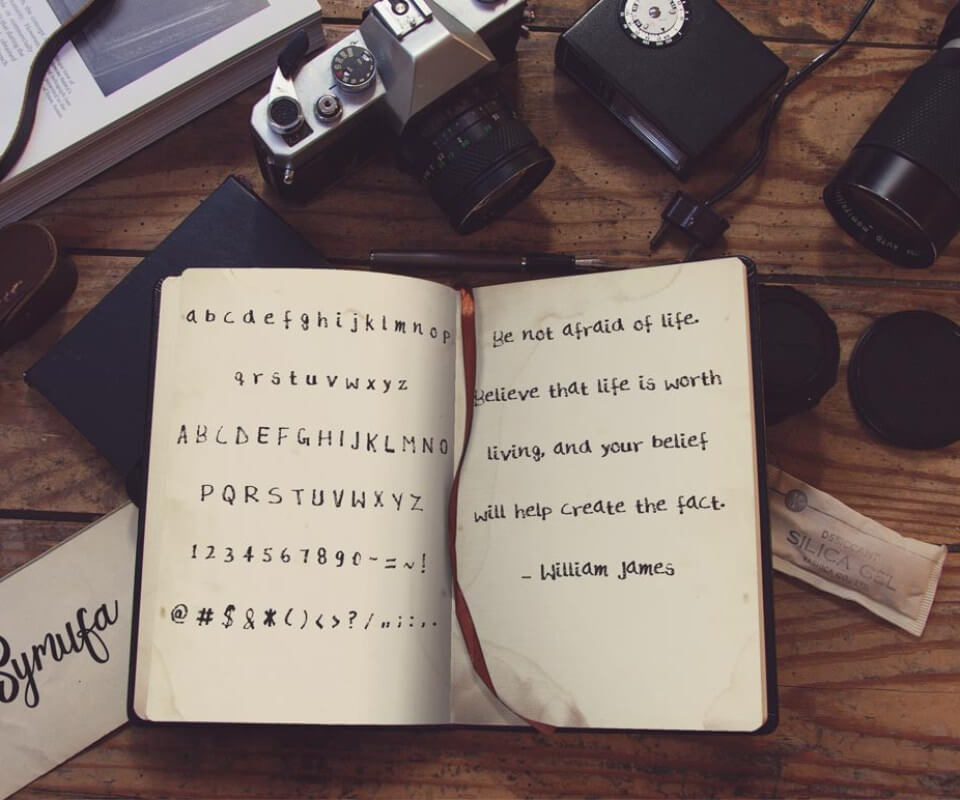 a b c d e f g h i j k l m n o p
q r s t u v w x y z
A B C D E F G H I J K L M N O
P Q R S T U V W X Y Z
1 2 3 4 5 6 7 8 9 0 - = ~ !
@ # $ & * ( ) < > ? / " ; : , .
Be not afraid of life.
Believe that life is worth
living, and your belief
will help create the fact.
- William James
Symufa
DESICCANT
SILICA GEL